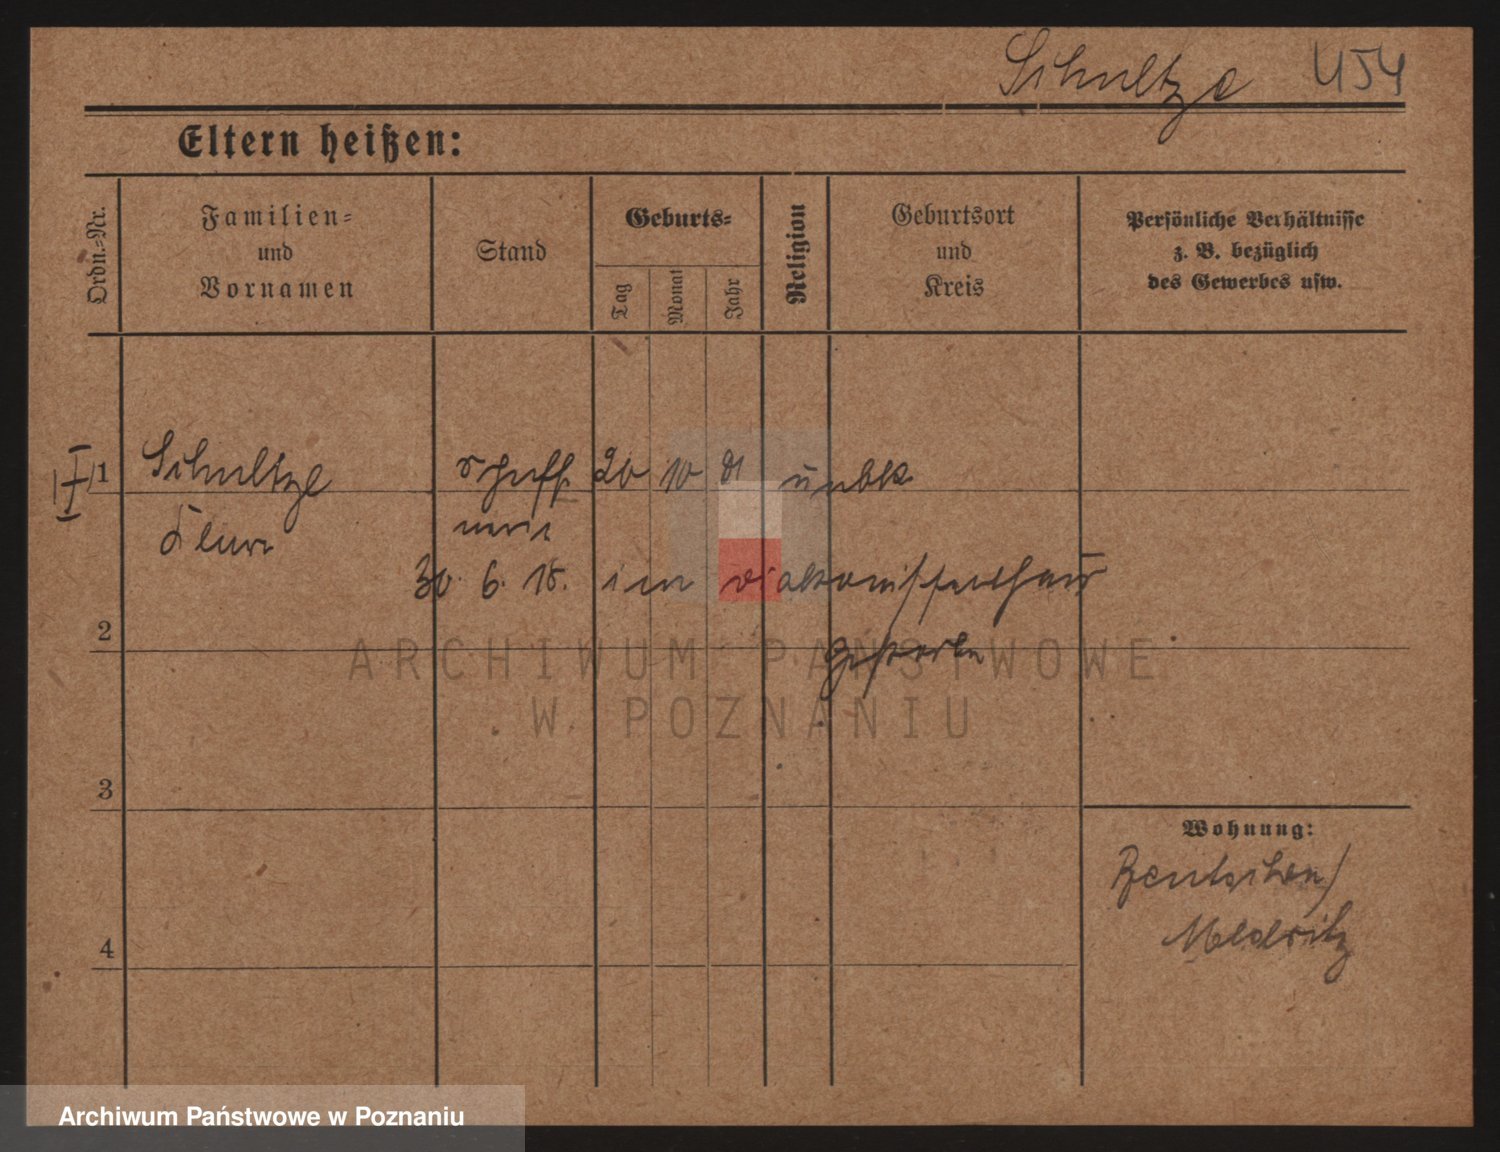 Schultze 454
Eltern heißen:
Ordn.=Nr.
Familien=
und
Vornamen
Stand
Geburts=
Tag
Monat
Jahr
Religion
Geburtsort
und
Kreis
Persönliche Verhältnisse
z. B. bezüglich
des Gewerbes usw.
1 Schultze 20 10 81 unbk
30. 6. 18. im Diakonissenhaus
2
gestorben
ARCHIWUM PAŃSTWOWE
W POZNANIU
3
Wohnung:
Bentschen/
4
Archiwum Państwowe w Poznaniu